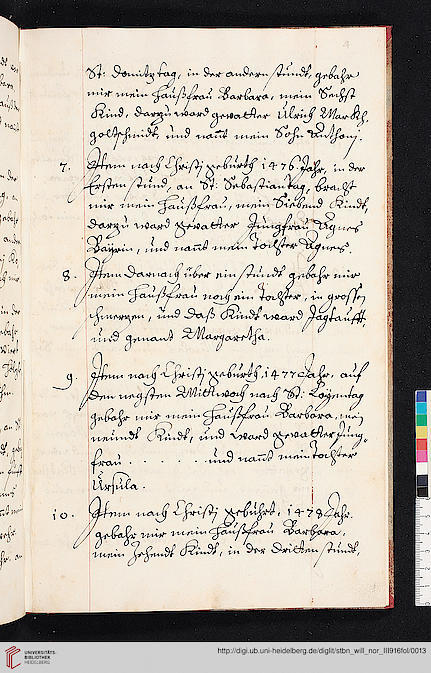 St: Domitztag, in der andern stundt, gebahr
mir mein Haußfrau Barbara, mein Sechst
Kind, darzu ward gevatter Ulrich Markh,
goltschmidt, und nant mein Sohn Anthonj.
7. Jtem nach Christj geburth 1476 Jahr, in der
Ersten stund, an St: Sebastian Tag, bracht
mir mein Haußfrau, mein Siebend Kindt,
darzu ward gevatter Jungfrau Agnes
Bayrin, und nant mein Tochter Agnes.
8. Jtem darnach über ein stundt gebahr mir
mein Haußfrau noch ein Tochter, in grossen
schmerzen, und daß Kindt ward Jagtaufft
und genant Margaretha.
9. Jtem nach Christj geburth, 1477 Jahr, auf
den negsten Mittwoch nach St:
gebahr mir mein Haußfrau Barbara, mein
neundt Kindt, und ward gevatter Jung-
frau . . . . . . und nant mein Tochter
Ursula.
10. Jtem nach Christj gebührt, 1478 Jahr
gebahr mir mein Haußfrau Barbara,
mein Zehendt Kindt, in der dritten stundt,
UNIVERSITÄTS-
BIBLIOTHEK
HEIDELBERG
http://digi.ub.uni-heidelberg.de/diglit/stbn_will_nor_III916fol/0013